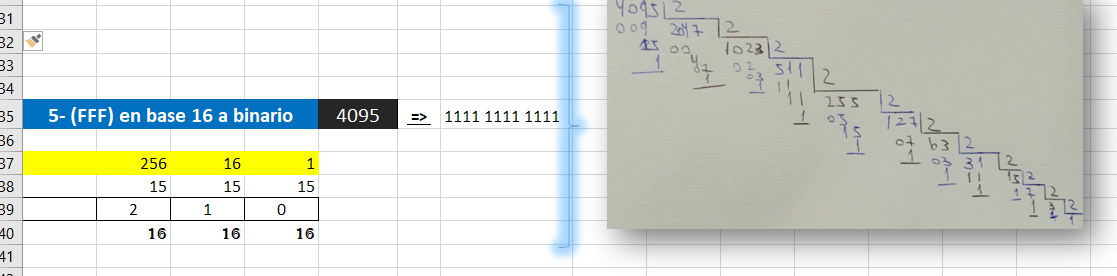 31
32
33
34
35 5- (FFF) en base 16 a binario 4095 => 1111 1111 1111
36
37 256 16 1
38 15 15 15
39 2 1 0
40 16 16 16
41
4095 2
009 2047 2
15 00 1023 2
1 47 02 511 2
1 03 11 255 2
1 11 05 127 2
1 15 07 63 2
1 1 03 31 2
1 11 15 2
1 1 7 2
1 3 2
1 1